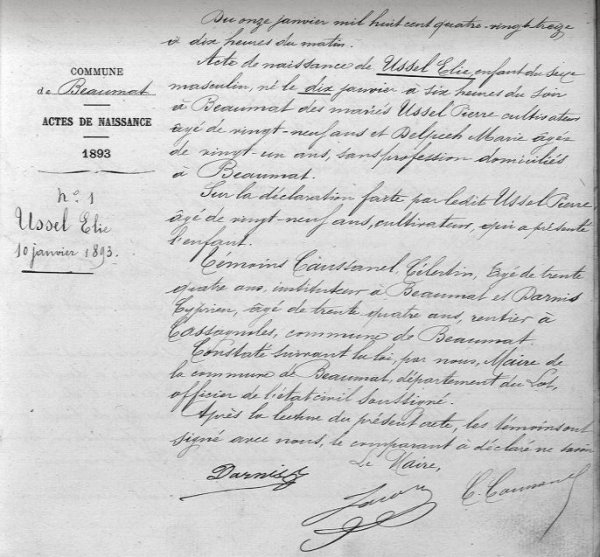 COMMUNE
de Beaumat
ACTES DE NAISSANCE
1893
n° 1
Ussel Elie
10 janvier 1893.
Du onze janvier mil huit cent quatre-vingt treize
à dix heures du matin.
Acte de naissance de Ussel Elie, enfant du sexe
masculin, né le dix janvier à six heures du soir
à Beaumat des mariés Ussel Pierre cultivateur
âgé de vingt-neuf ans et Delpech Marie âgée
de vingt-un ans, sans profession domiciliés
à Beaumat.
Sur la déclaration faite par ledit Ussel Pierre
âgé de vingt-neuf ans, cultivateur, qui a présenté
l'enfant.
Témoins Caussanel, âgé de trente
quatre ans, instituteur à Beaumat et Darnis
Cyprien, âgé de trente quatre ans, rentier à
commune de Beaumat.
Constaté suivant la loi, par nous, Maire de
la commune de Beaumat, département du Lot,
officier de l'état civil soussigné.
Après la lecture du présent acte, les témoins ont
signé avec nous, le comparant à déclaré ne savoir
Le Maire,
Darnis
C. Caussanel